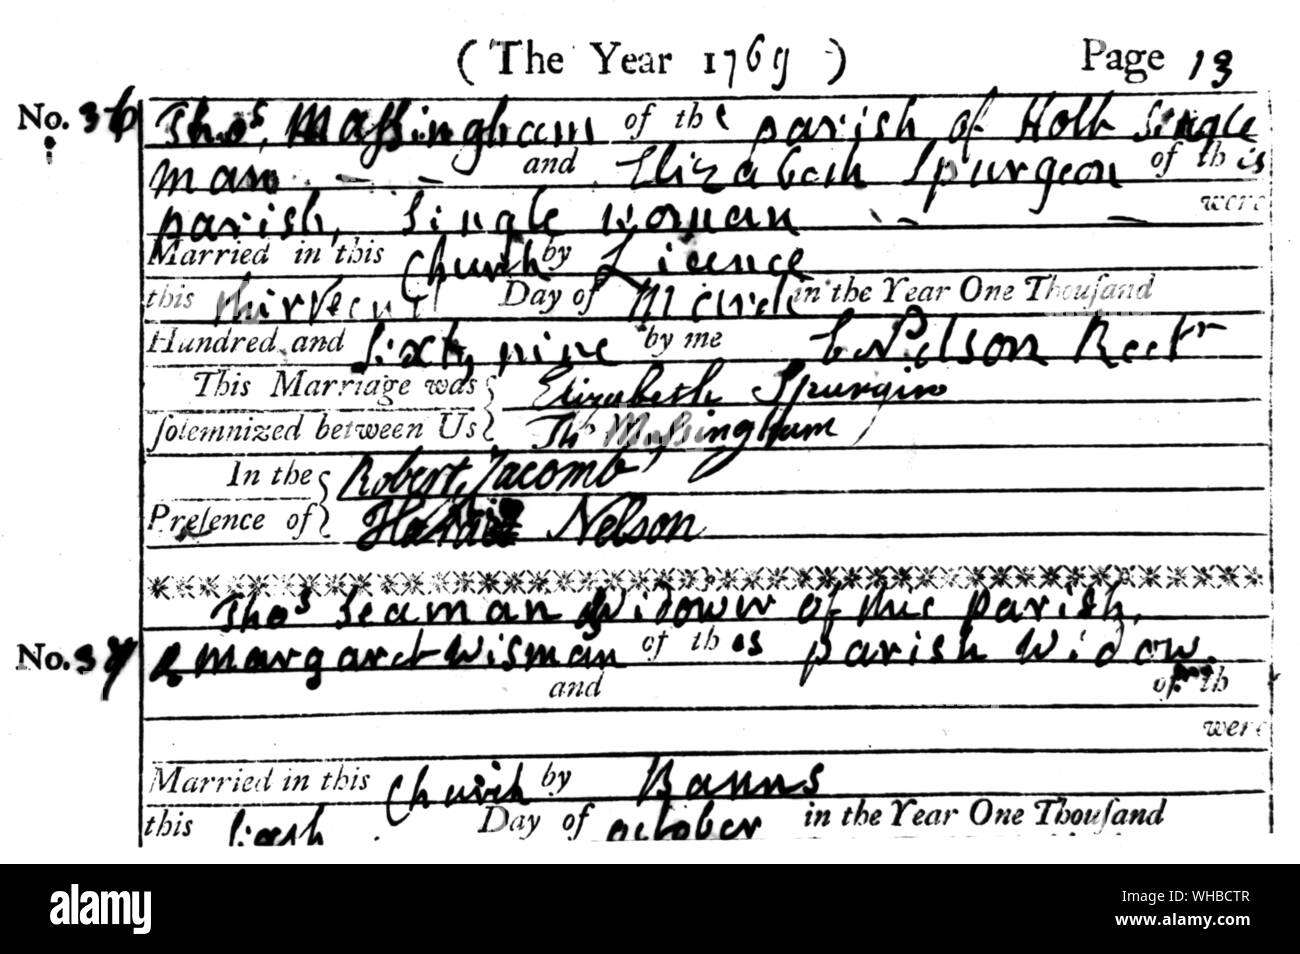 ( The Year 1769 ) Page 13
No. 36 Thos. Massingham of the parish of Holt Single
man - - and Elizabeth Spurgeon of this
parish, Single woman - - were
Married in this Church by Licence
this thirteenth Day of March in the Year One Thousand
Hundred and Sixty nine by me E Nelson Rectr
This Marriage was { Elizabeth Spurgin
solemnized between Us { Ths Massingham
In the { Robert Jacomb
Presence of } Horatio Nelson
Thos Seaman Widower of this parish,
No. 37 & Margaret Wisman of this parish Widow.
and of th
were
Married in this Church by Banns
this Day of october in the Year One Thousand
alamy
Image ID: WHBCTR
www.alamy.com